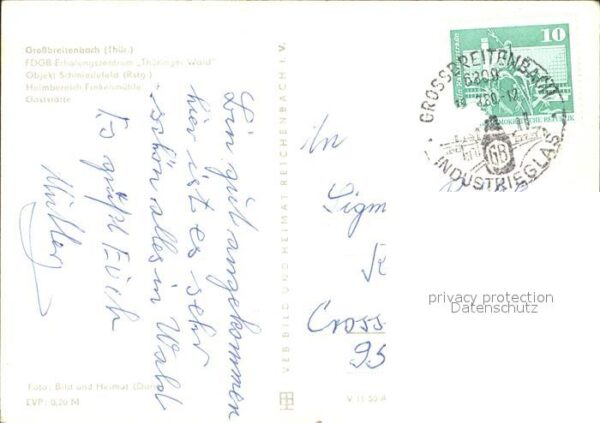 Großbreitenbach (Thür.)
FDGB-Erholungszentrum „Thüringer Wald"
Objekt Schmiedefeld (Rstg.)
Heimbereich Finkenmühle
Gaststätte
Bin gut angekommen
hier ist es sehr
schön alles in Wald
Es grüßt Euch
Mutter
Foto: Bild und Heimat
EVP: 0,20 M
VEB BILD UND HEIMAT REICHENBACH i. V.
V 11 50 A
10
DEMOKRATISCHE REPUBLIK
GROSSBREITENBACH
6309
80-12
GB
INDUSTRIEGLAS
An
Sigm
Cross
95
privacy protection
Datenschutz